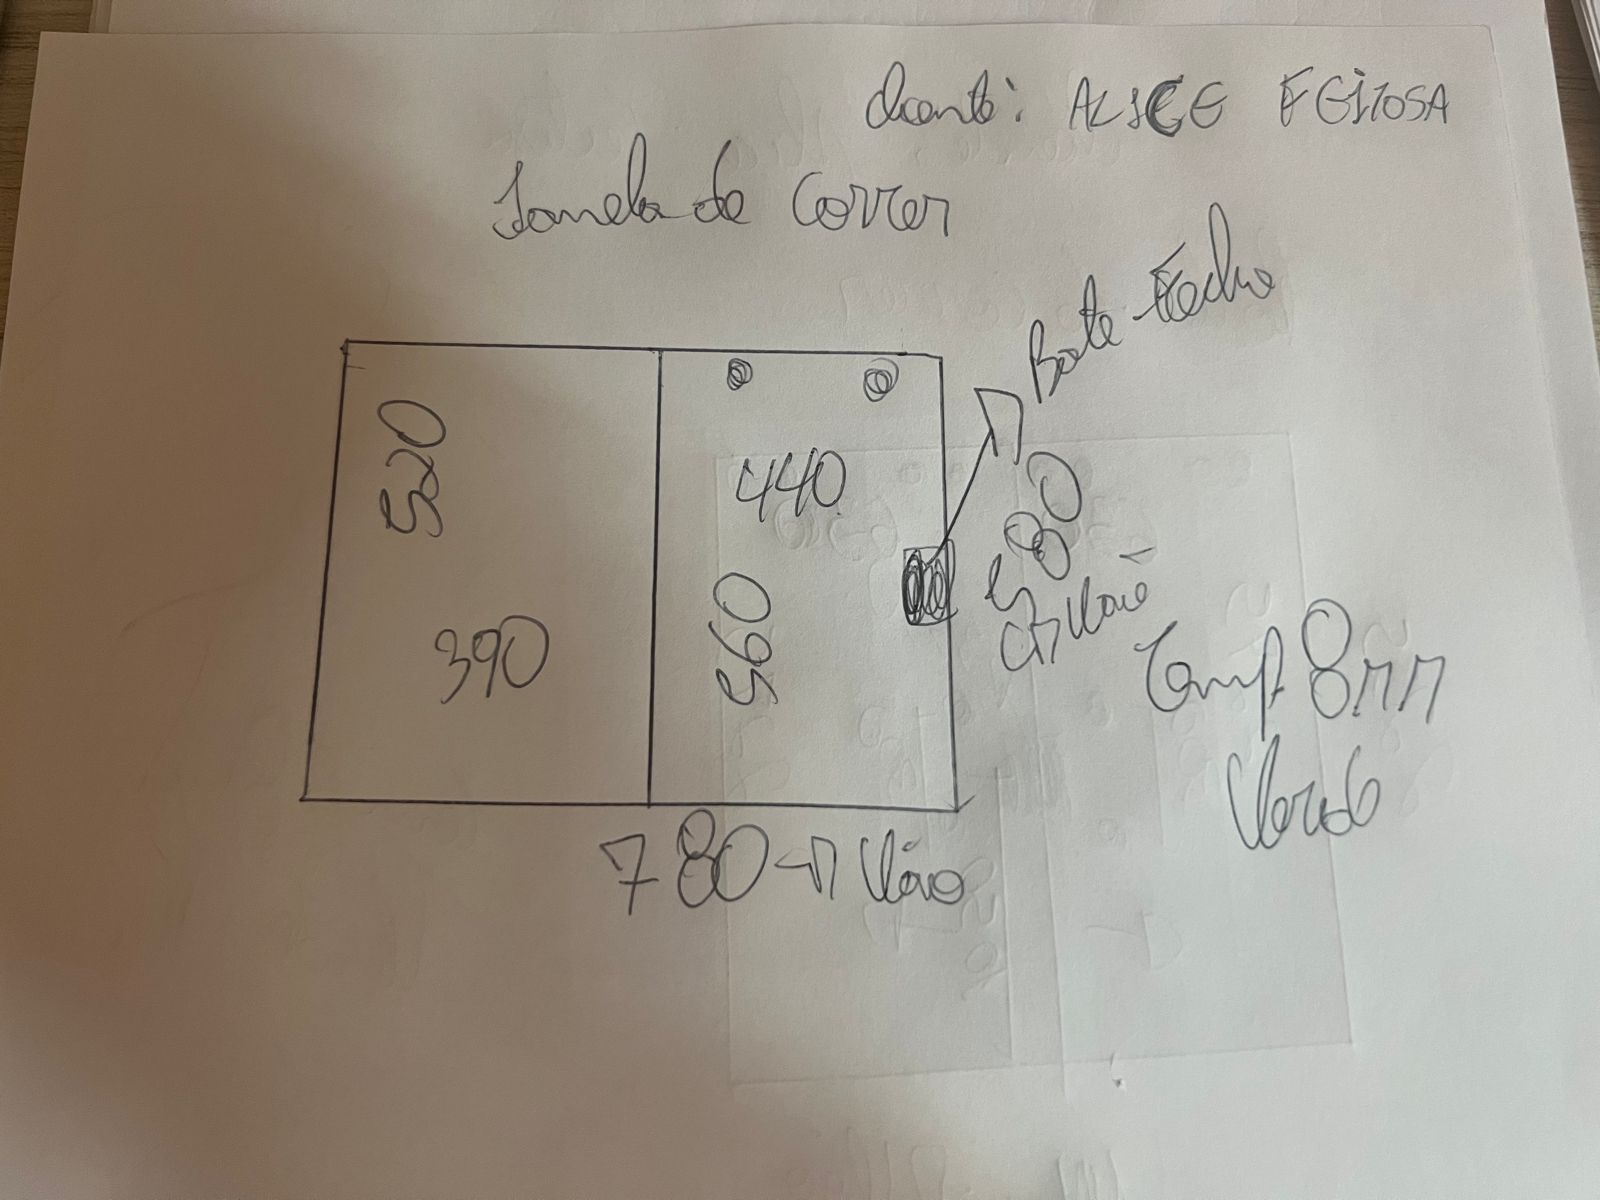 cliente: ALICE FEITOSA
Janela de Correr
Bate-Fecho
520
440
580
Vão
390
560
Temp 8mm
Verde
780 → Vão